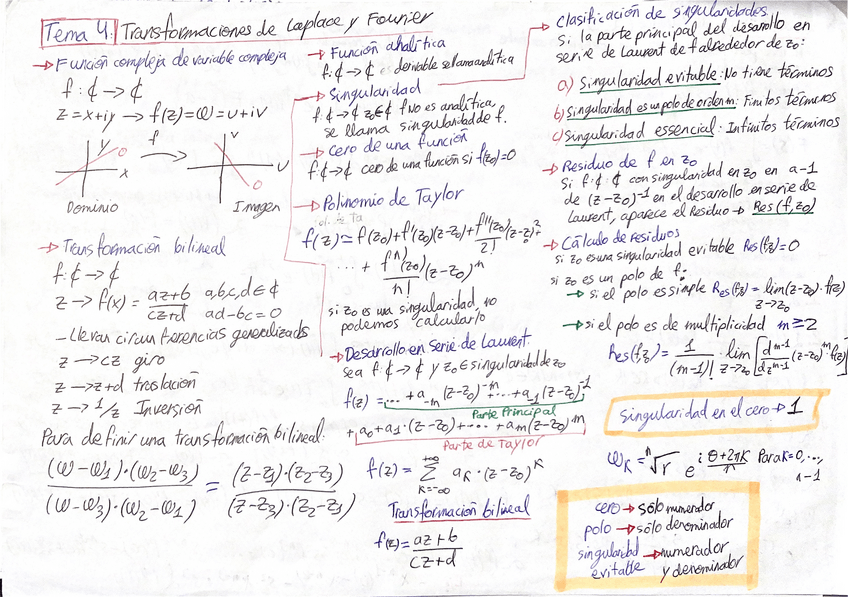 Tema 4: Transformaciones de Laplace y Fourier
→ Función compleja de variable compleja
f: ₵ → ₵
z = x+iy → f(z) = ω = u+iv
y
x
f
v
u
Dominio
Imagen
→ Transformación bilineal
f: ₵ → ₵
z → f(x) = (az+b)/(cz+d) a,b,c,d ∈ ₵
ad-bc = 0
- Llevan circunferencias generalizads
z → cz giro
z → z+d traslación
z → 1/z Inversión
Para definir una transformación bilineal:
((ω-ω1)·(ω2-ω3))/((ω-ω3)·(ω2-ω1)) = ((z-z1)·(z2-z3))/((z-z3)·(z2-z1))
→ Función analítica
f: ₵ → ₵ es derivable se llama analítica
→ Singularidad
f: ₵ → ₵ z0 ∈ ₵ f No es analítica,
se llama singularidad de f.
→ Cero de una función
f: ₵ → ₵ cero de una función si f(z0) = 0
→ Polinomio de Taylor
f(z) ≃ f(z0) + f'(z0)(z-z0) + (f''(z0)/2!)(z-z0)²
··· + (fⁿ⁾(z0)/n!)(z-z0)ⁿ
si z0 es una singularidad, no
podemos calcularlo
→ Desarrollo en serie de Laurent.
sea f: ₵ → ₵ y z0 ∈ singularidad de z0
f(z) = ... + a-m (z-z0)^-m + ... + a-1 (z-z0)^-1
Parte Principal
+ a0 + a1·(z-z0) + ··· + am(z-z0)^m
Parte de Taylor
f(z) = Σ_{K=-∞}^{+∞} aK·(z-z0)^K
Transformación bilineal
f(z) = (az+b)/(cz+d)
→ Clasificación de singularidades
Si la parte principal del desarollo en
serie de Laurent de f alrededor de z0:
a) Singularidad evitable: No tiene términos
b) Singularidad es un polo de orden m: Finitos términos
c) Singularidad essencial: Infinitos términos
→ Residuo de f en z0
Si f: ₵ : ₵ con singularidad en z0 en a-1
de (z-z0)^-1 en el desarrollo en serie de
Laurent, aparece el Residuo → Res(f,z0)
→ Cálculo de residuos
si z0 es una singularidad evitable Res(f,z) = 0
si z0 es un polo de f:
→ si el polo es simple Res(f,z) = lim_{z→z0} (z-z0)·f(z)
→ si el polo es de multiplicidad m ≥ 2
Res(f,z) = 1/(m-1)! · lim_{z→z0} [d^{m-1}/dz^{m-1} (z-z0)^m f(z)]
Singularidad en el cero → 1
ωK = ⁿ√r e^{i (θ+2πK)/n} Para K=0,...,
n-1
cero → sólo numerador
polo → sólo denominador
singularidad → numerador
evitable y denominador